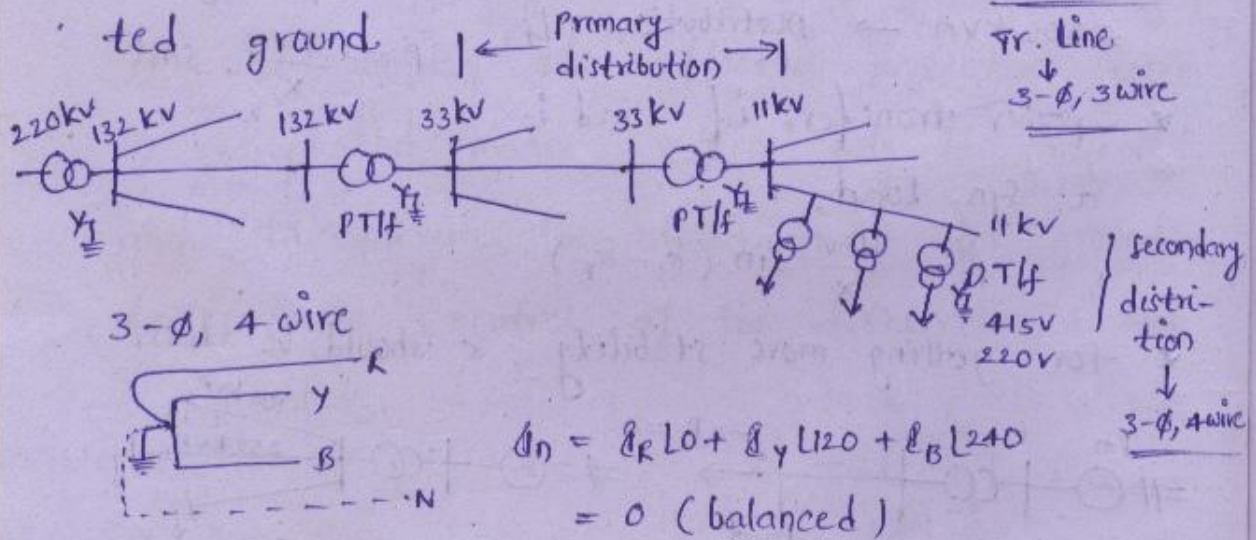 ted ground
primary
distribution
Tr. line
3-ø, 3 wire
220kv 132 kv 132 kv 33 kv 33 kv 11 kv
PT/f PT/f
11 kv
D.T/f
415v
220v
secondary
distri-
tion
3-ø, 4 wire
3-ø, 4 wire
R
Y
B
N
In = IR ∟0 + Iy ∟120 + IB ∟240
= 0 (balanced)